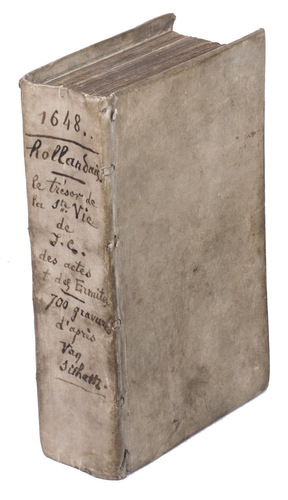 1648..
hollandais
le trésor de
la Ste Vie
de
J. C.
des actes
et des Ermites
700 gravures
d'après
Van